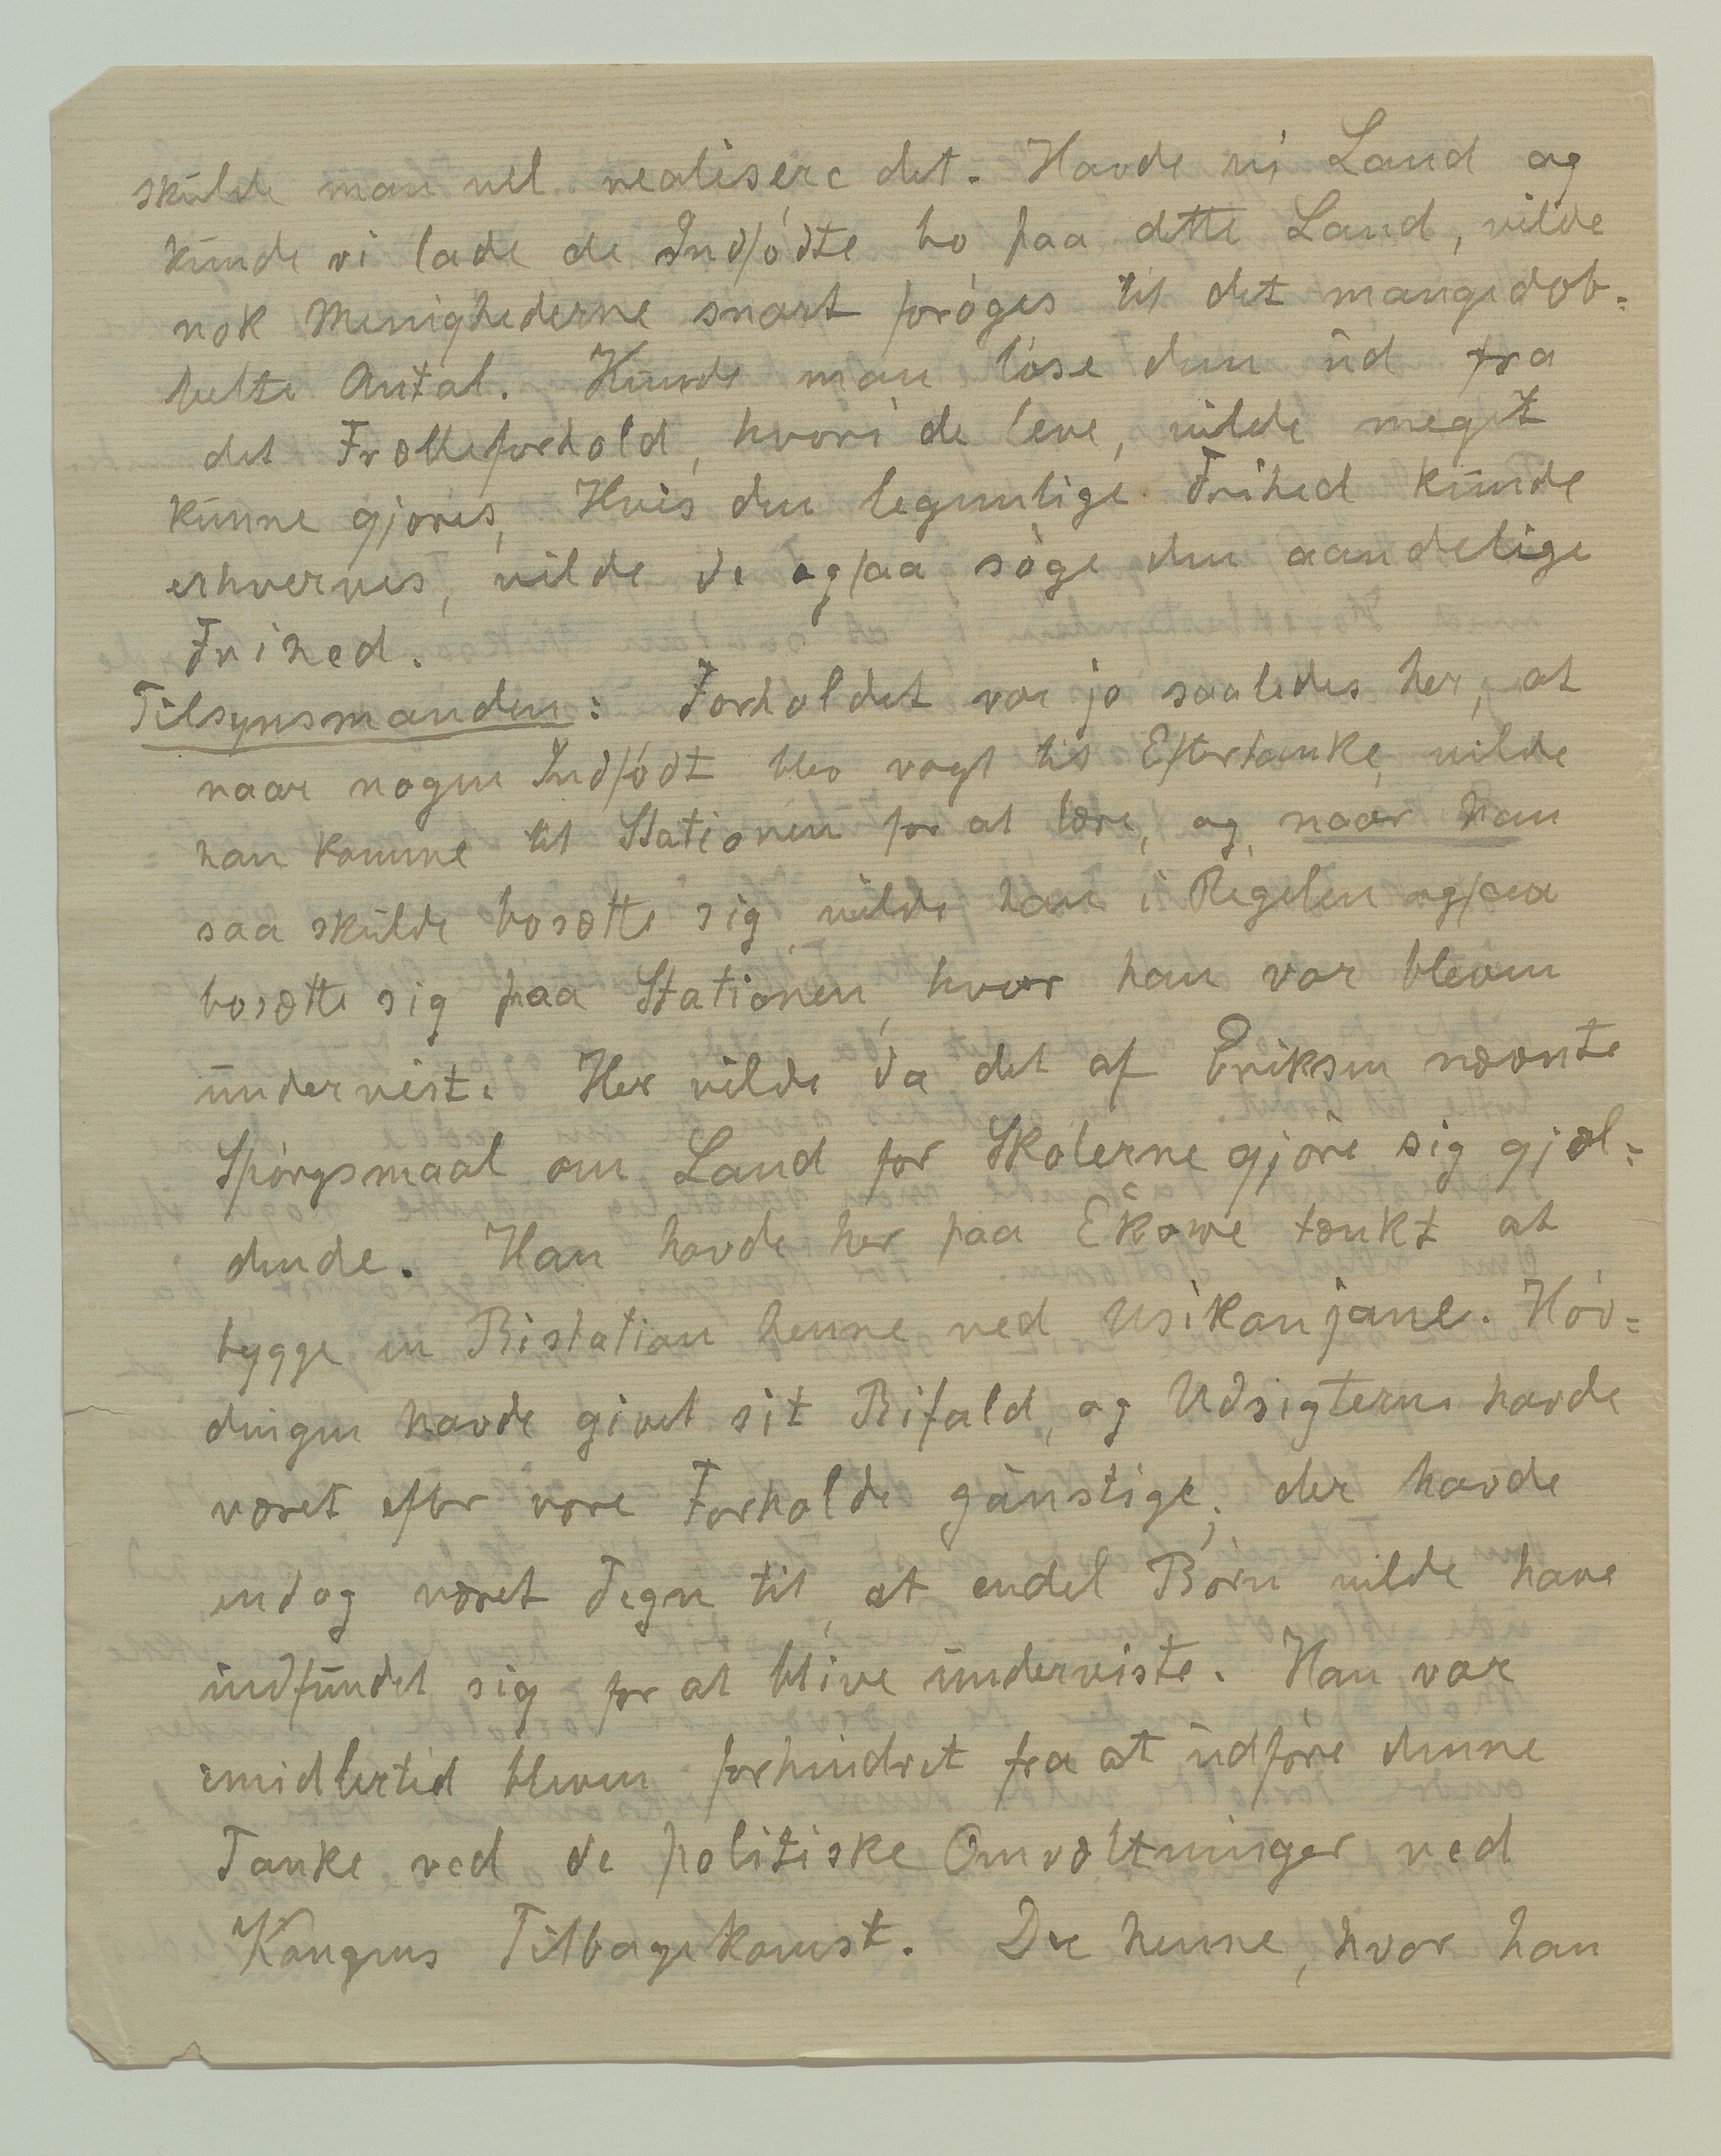 skulde man vel realisere det. Havde vi Land og
kunde vi lade de Indfødte bo paa dette Land, vilde
nok Menighederne snart forøges til det mangedob-
belte Antal. Kunde man løse dem ud fra
det Trælleforhold, hvori de leve, vilde meget
kunne gjøres, Hvis den legemlige Frihed kunde
erhverves, vilde de ogsaa søge den aandelige
Frihed.
Tilsynsmanden: Forholdet var jo saaledes her, at
naar nogen Indfødt blev vagt til Eftertanke, vilde
han komme til Stationen for at lære, og, naar han
saa skulde bosætte sig, vilde han i Regelen ogsaa
bosætte sig paa Stationen, hvor han var bleven
undervist. Her vilde da det af Eriksen nævnte
Spørgsmaal om Land for Skolerne gjøre sig gjæl-
dende. Han havde her paa Ekowe tænkt at
bygge en Bistation henne ved Usikanjane. Høv-
dingen havde givet sit Bifald, og Udsigterne havde
været efter vore Forholde gunstige; der havde
endog været Tegn til, at endel Børn vilde have
indfundet sig for at blive underviste. Han var
imidlertid bleven forhindret fra at udføre denne
Tanke ved de politiske Omvæltninger ved
Kongens Tilbagekomst. Der henne, hvor han